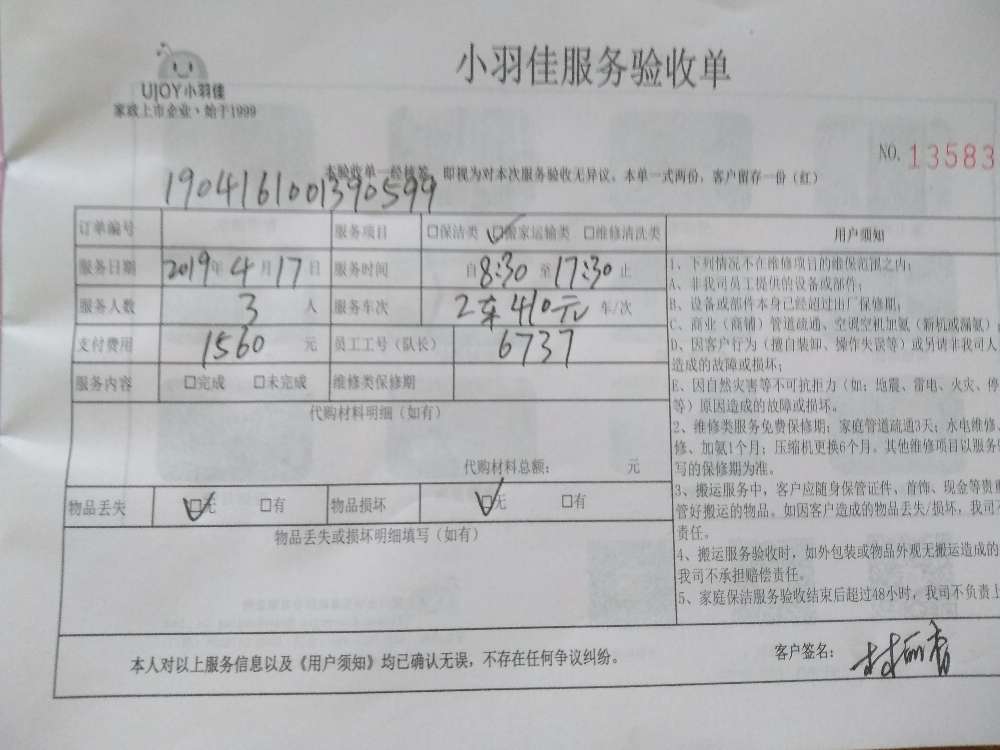 小羽佳服务验收单
UJOY小羽佳
家政上市企业,始于1999
NO. 13583
本验收单一经核签,即视为对本次服务验收无异议。本单一式两份,客户留存一份(红)
1904161001390599
订单编号 服务项目 □保洁类 □搬家运输类 □维修清洗类
服务日期 2019年4月17日 服务时间 自8:30至17:30止
服务人数 3 人 服务车次 2车410元 车/次
支付费用 1560 元 员工工号(队长) 6737
服务内容 □完成 □未完成 维修类保修期
代购材料明细(如有)
代购材料总额: 元
物品丢失 □无 □有 物品损坏 □无 □有
物品丢失或损坏明细填写(如有)
用户须知
1、下列情况不在维修项目的维保范围之内:
A、非我司员工提供的设备或部件;
B、设备或部件本身已经超过出厂保修期;
C、商业(商铺)管道疏通、空调空机加氨(新机或漏氨)
D、因客户行为(擅自装卸、操作失误等)或另请非我司人
造成的故障或损坏;
E、因自然灾害等不可抗拒力(如:地震、雷电、火灾、停
等)原因造成的故障或损坏。
2、维修类服务免费保修期:家庭管道疏通3天;水电维修、
修、加氨1个月;压缩机更换6个月。其他维修项目以服务
写的保修期为准。
3、搬运服务中,客户应随身保管证件、首饰、现金等贵重
管好搬运的物品。如因客户造成的物品丢失/损坏,我司不
责任。
4、搬运服务验收时,如外包装或物品外观无搬运造成的
我司不承担赔偿责任。
5、家庭保洁服务验收结束后超过48小时,我司不负责上
本人对以上服务信息以及《用户须知》均已确认无误,不存在任何争议纠纷。
客户签名: